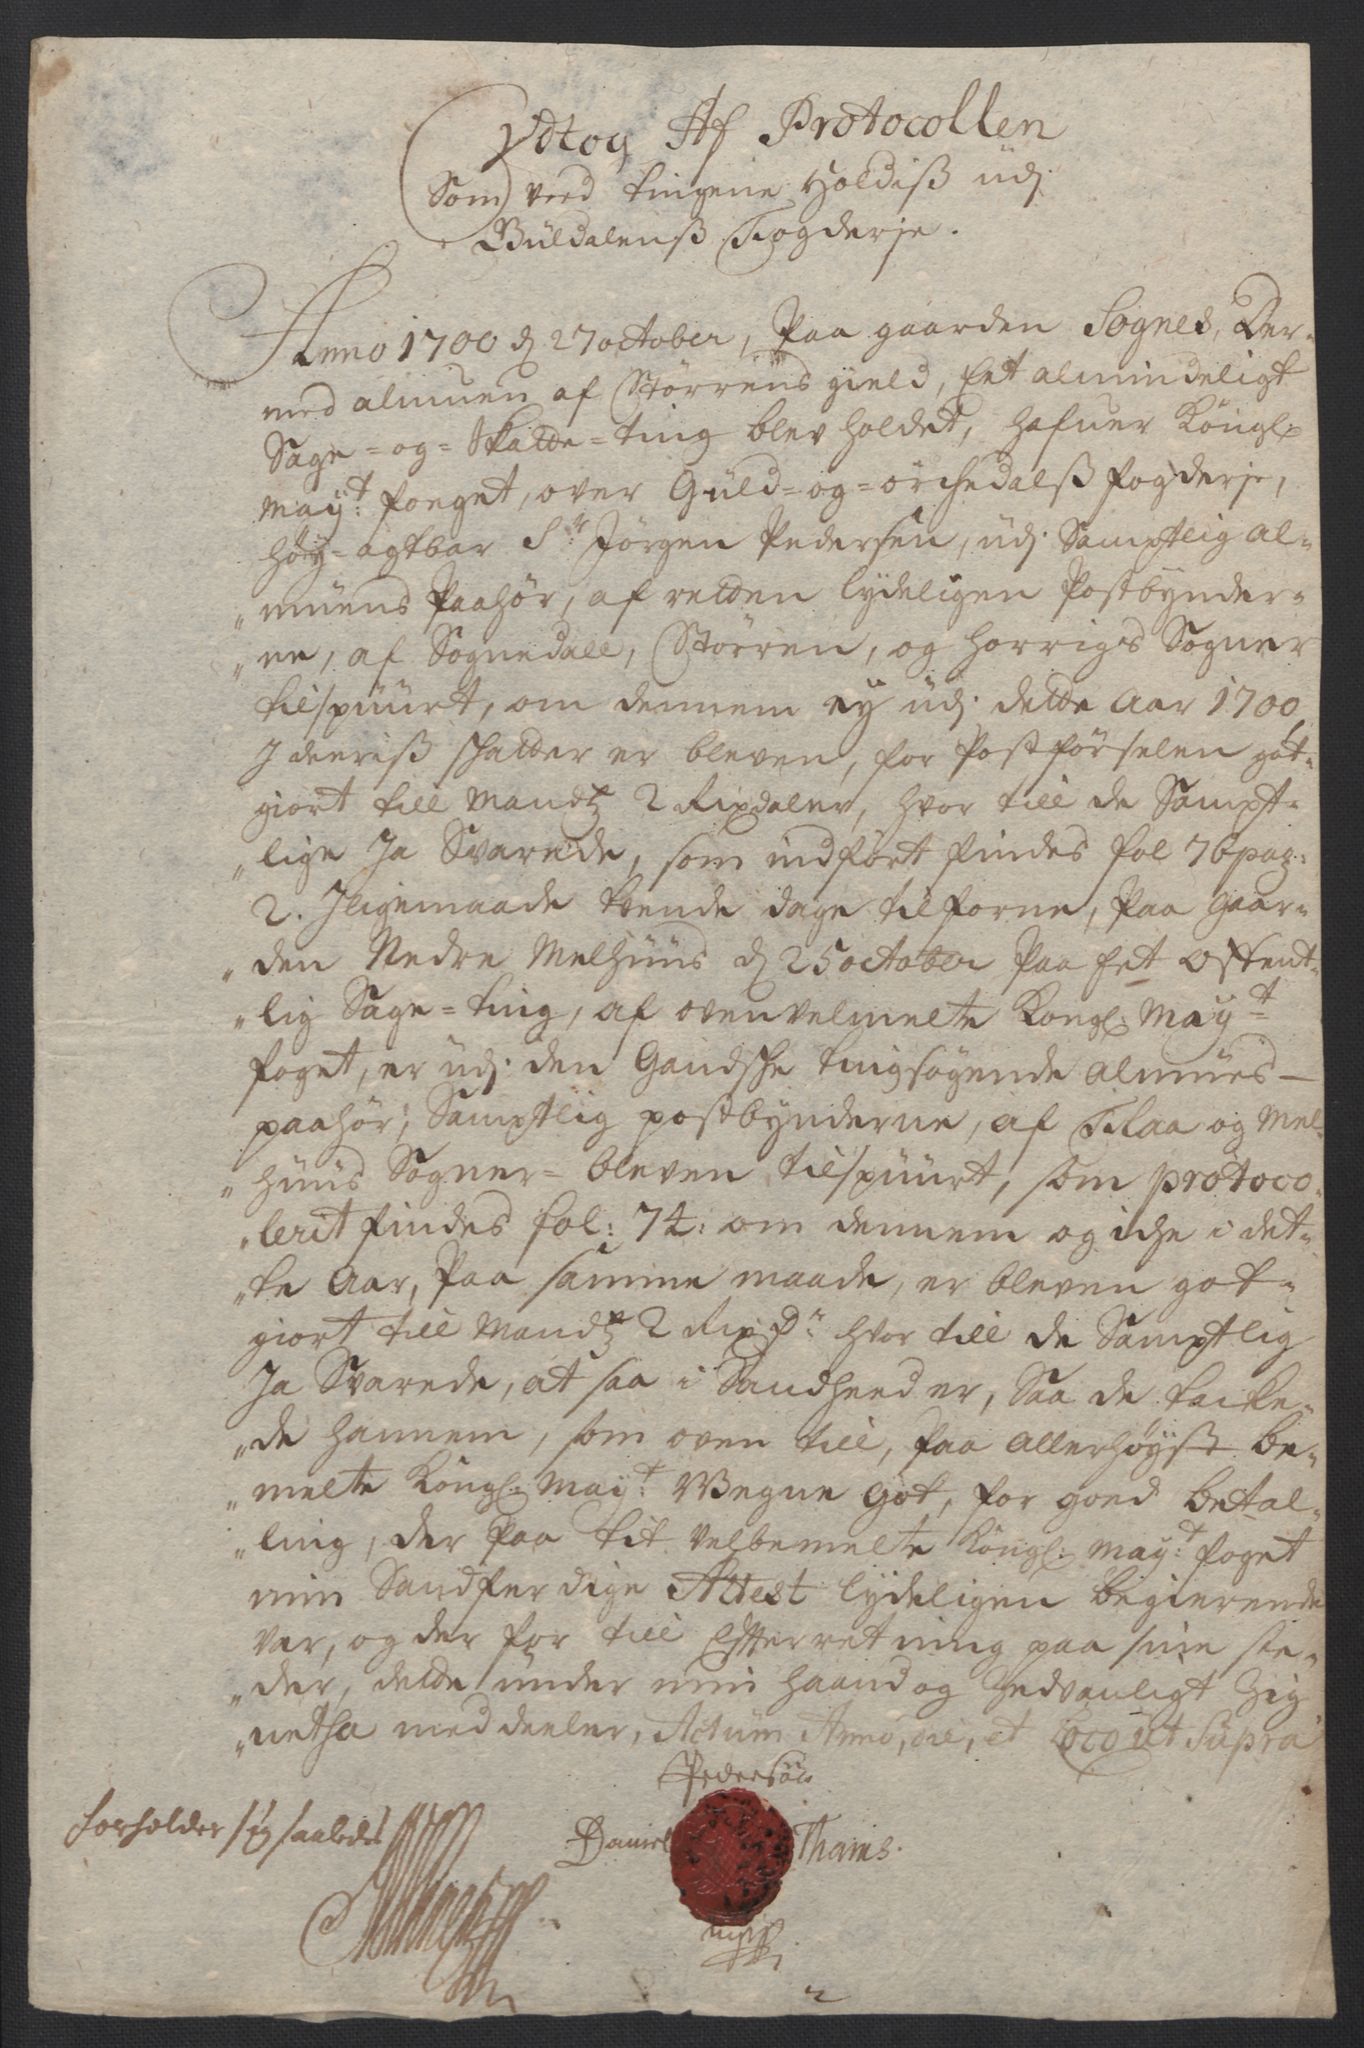 Udtog Af Protocollen
Som ved tingene Holdiß udj
Guldalenß Fogderje.
Anno 1700 d 27 october, Paa gaarden Sognes, Der
med almuen af Störrens gield, Eet almindeligt
Sage=og=Skatte=ting blev holdet, hafuer Kongl
May:t foeget, over Guld=og=örchedalß fogderje,
höy=agtbar Sr: Jörgen Pedersen, udj Samptlig al-
muens Paahör, af retten lydeligen Postbynder-
ne, af Sognedall, Störren, og Horrigs Sogner
tilspuurt, om dennem ey udj dette Aar 1700
J deeriß skatter er bleven, for Postförselen got-
giort till Mandtz 2 Rixdaler, hvor till de Sampt-
lige Ja Svarede, som indfört findes fol 76 pag:
2. Jligemaade tvende dage tilforne, Paa Gaar-
den Nedre Melhuus d 25 october Paa Eet offent-
lig Sage=ting, af ovenvelmelte Kongl: May:t
foget, er udj den Gandske tingsögende almues
paahör, Samptlig postbynderne, af Flaa og Mel-
huus Sogner bleven tilspuurt, som protoco-
lerit findes fol: 74: om dennem og iche i det-
te Aar, Paa samme maade, er bleven got-
giort till Mandtz 2 Rixdr hvor till de Samptlig
Ja Svarede, at saa i Sandheed er, Saa de tacke-
de hannem, som oven till, Paa Allerhöyst be-
melte Kongl: May:t Wegne got, for goed betal-
ling, der Paa tit velbemelte Kongl: May:t foget
min Sandferdige Attest lydeligen begierende
var, og der for till Efterretning paa sine ste-
der, dette under min haand og Sedvanligt Zig
netha meddeeler, Actum Anno, die, et Loco ut Supra
Pedersön
forholder sig saaledes
Daniel Thams.
mpp